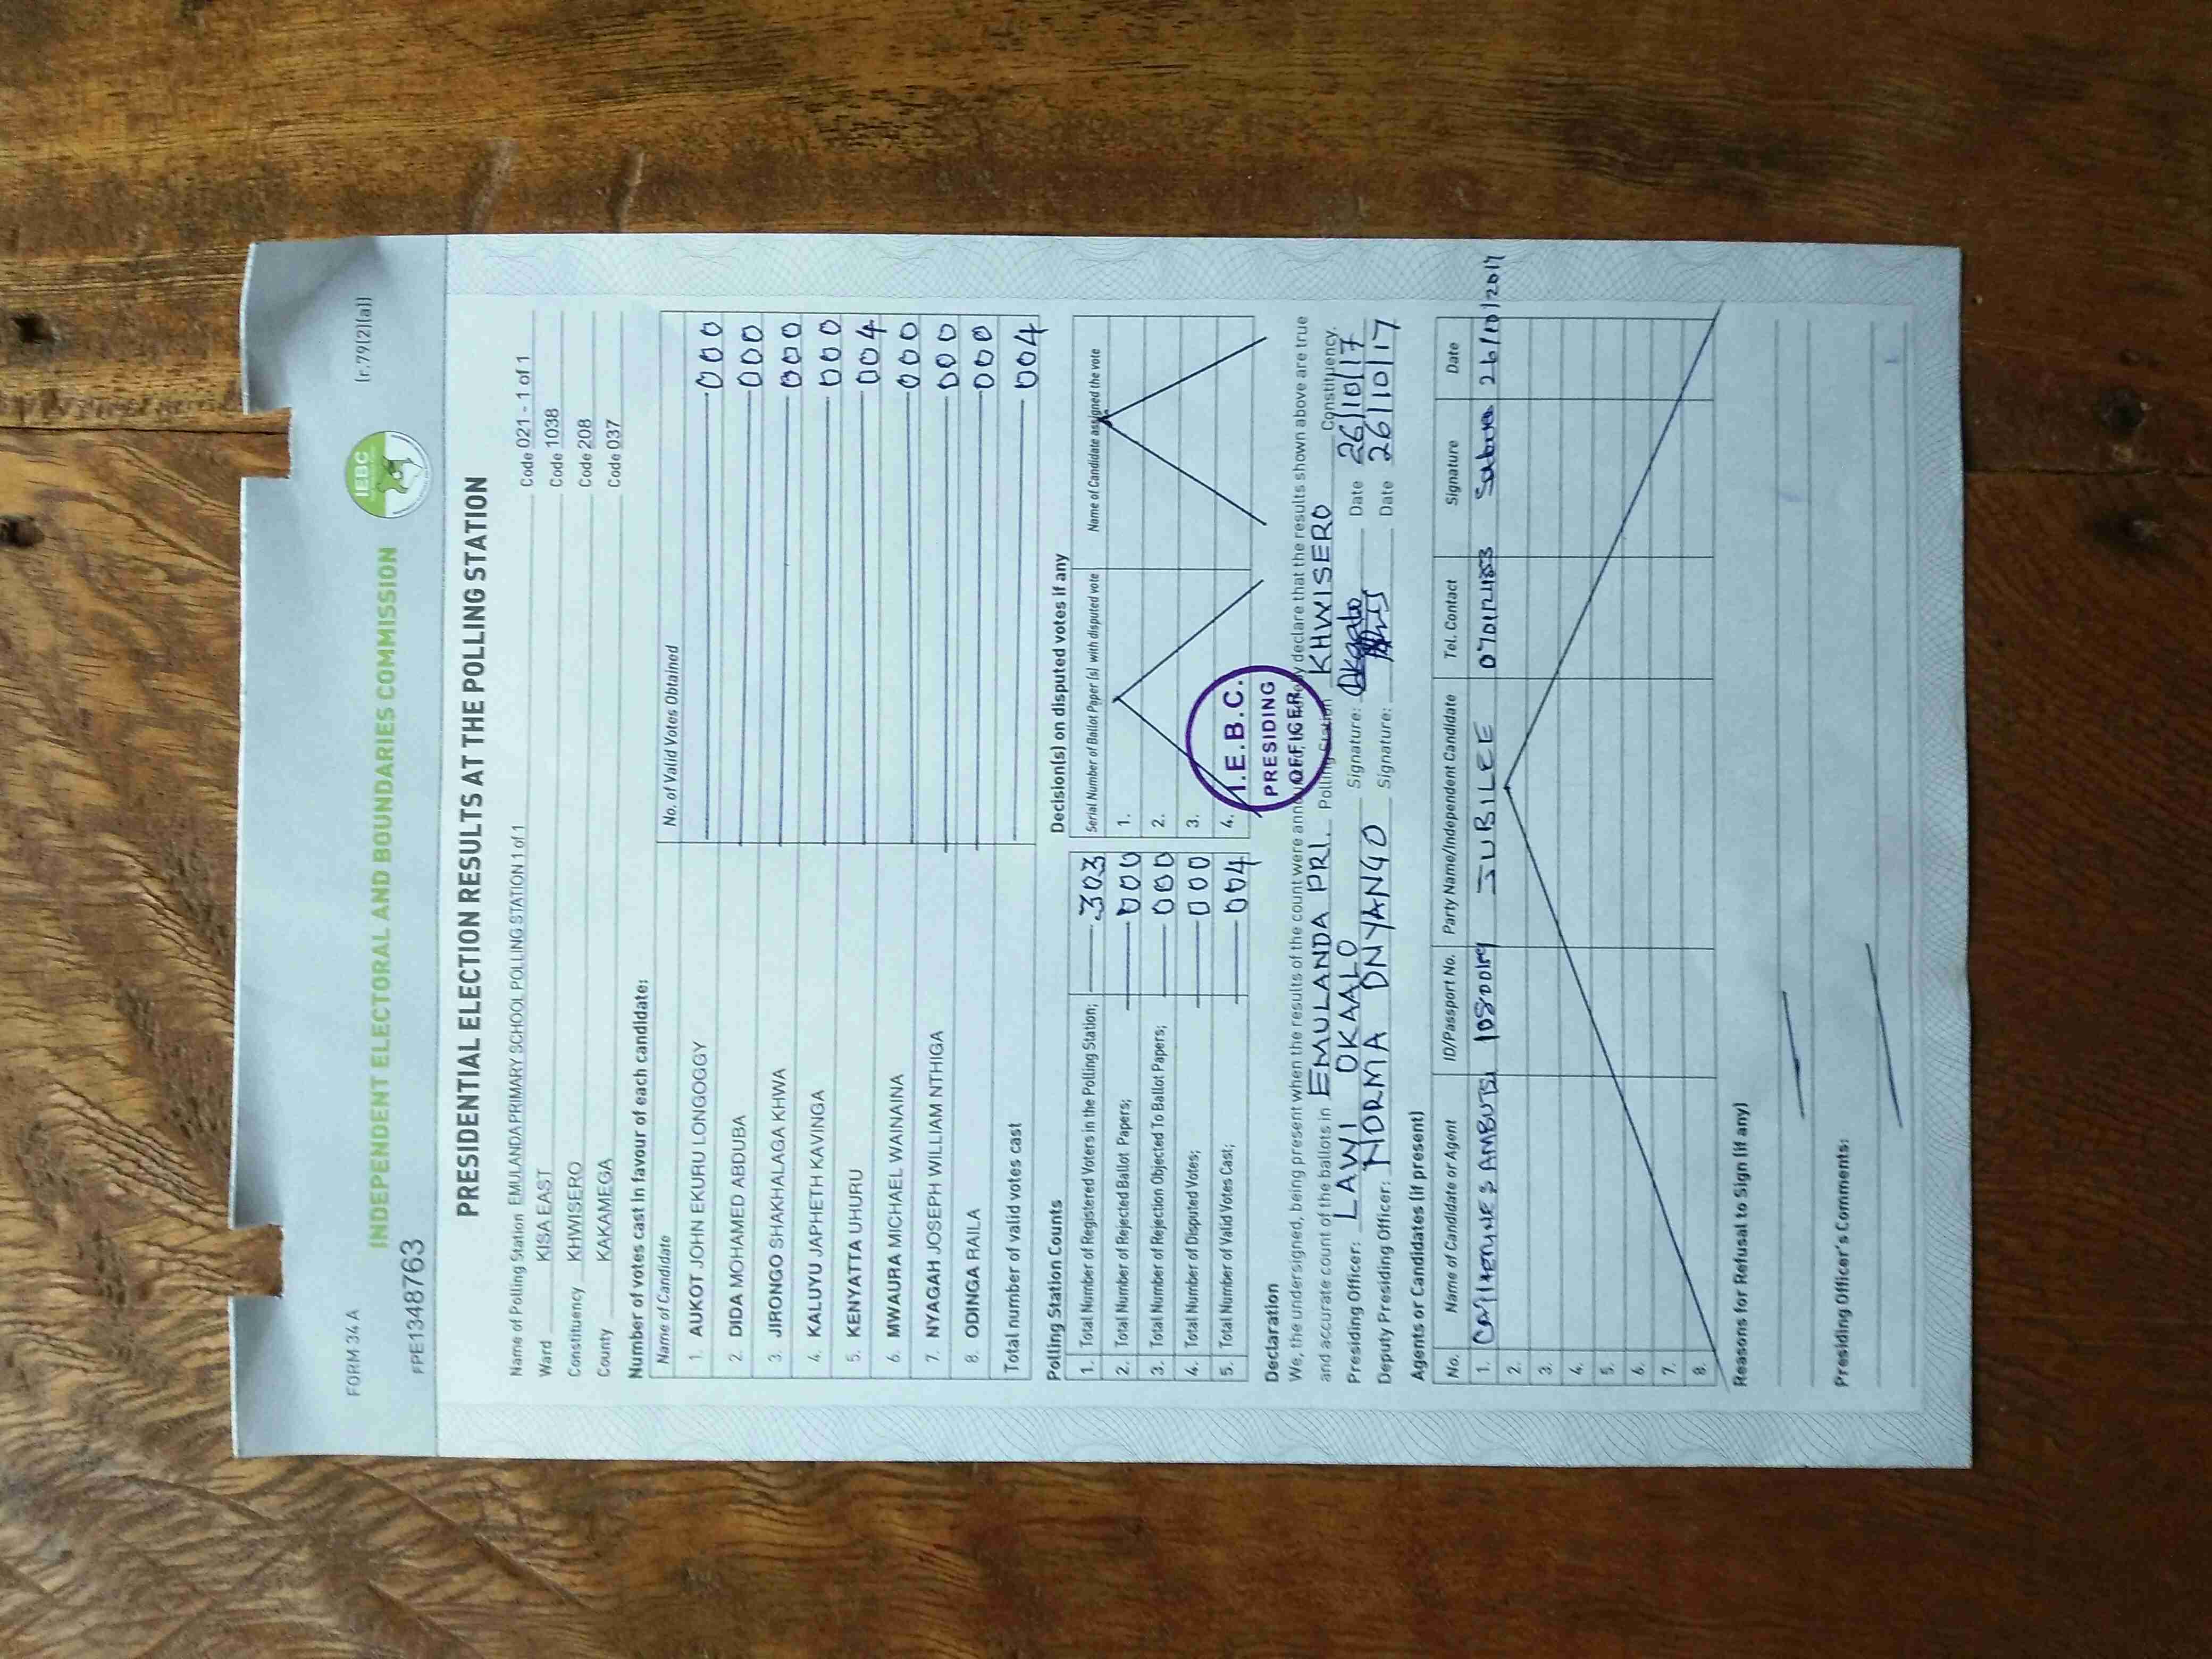 FORM 34 A
(r.79(2)(a))
INDEPENDENT ELECTORAL AND BOUNDARIES COMMISSION
IEBC
FPE1348763
PRESIDENTIAL ELECTION RESULTS AT THE POLLING STATION
Name of Polling Station EMULANDA PRIMARY SCHOOL POLLING STATION 1 of 1 Code 021 - 1 of 1
Ward KISA EAST Code 1038
Constituency KHWISERO Code 208
County KAKAMEGA Code 037
Number of votes cast in favour of each candidate:
Name of Candidate No. of Valid Votes Obtained
1. AUKOT JOHN EKURU LONGOGGY 000
2. DIDA MOHAMED ABDUBA 000
3. JIRONGO SHAKHALAGA KHWA 000
4. KALUYU JAPHETH KAVINGA 000
5. KENYATTA UHURU 004
6. MWAURA MICHAEL WAINAINA 000
7. NYAGAH JOSEPH WILLIAM NTHIGA 000
8. ODINGA RAILA 000
Total number of valid votes cast 004
Polling Station Counts
1. Total Number of Registered Voters in the Polling Station; 303
2. Total Number of Rejected Ballot Papers; 000
3. Total Number of Rejection Objected To Ballot Papers; 000
4. Total Number of Disputed Votes; 000
5. Total Number of Valid Votes Cast; 004
Decision(s) on disputed votes if any
Serial Number of Ballot Paper (s) with disputed vote Name of Candidate assigned the vote
1.
2.
3.
4.
I.E.B.C.
PRESIDING
OFFICER
Declaration
We, the undersigned, being present when the results of the count were declare that the results shown above are true
and accurate count of the ballots in EMULANDA PRI. Polling Station KHWISERO Constituency.
Presiding Officer: LAWI OKAALO Signature: Date 26/10/17
Deputy Presiding Officer: NORMA ONYANGO Signature: Date 26/10/17
Agents or Candidates (if present)
No. Name of Candidate or Agent ID/Passport No. Party Name/Independent Candidate Tel. Contact Signature Date
1. JUBILEE 26/10/2017
2.
3.
4.
5.
6.
7.
8.
Reasons for Refusal to Sign (if any)
Presiding Officer's Comments: